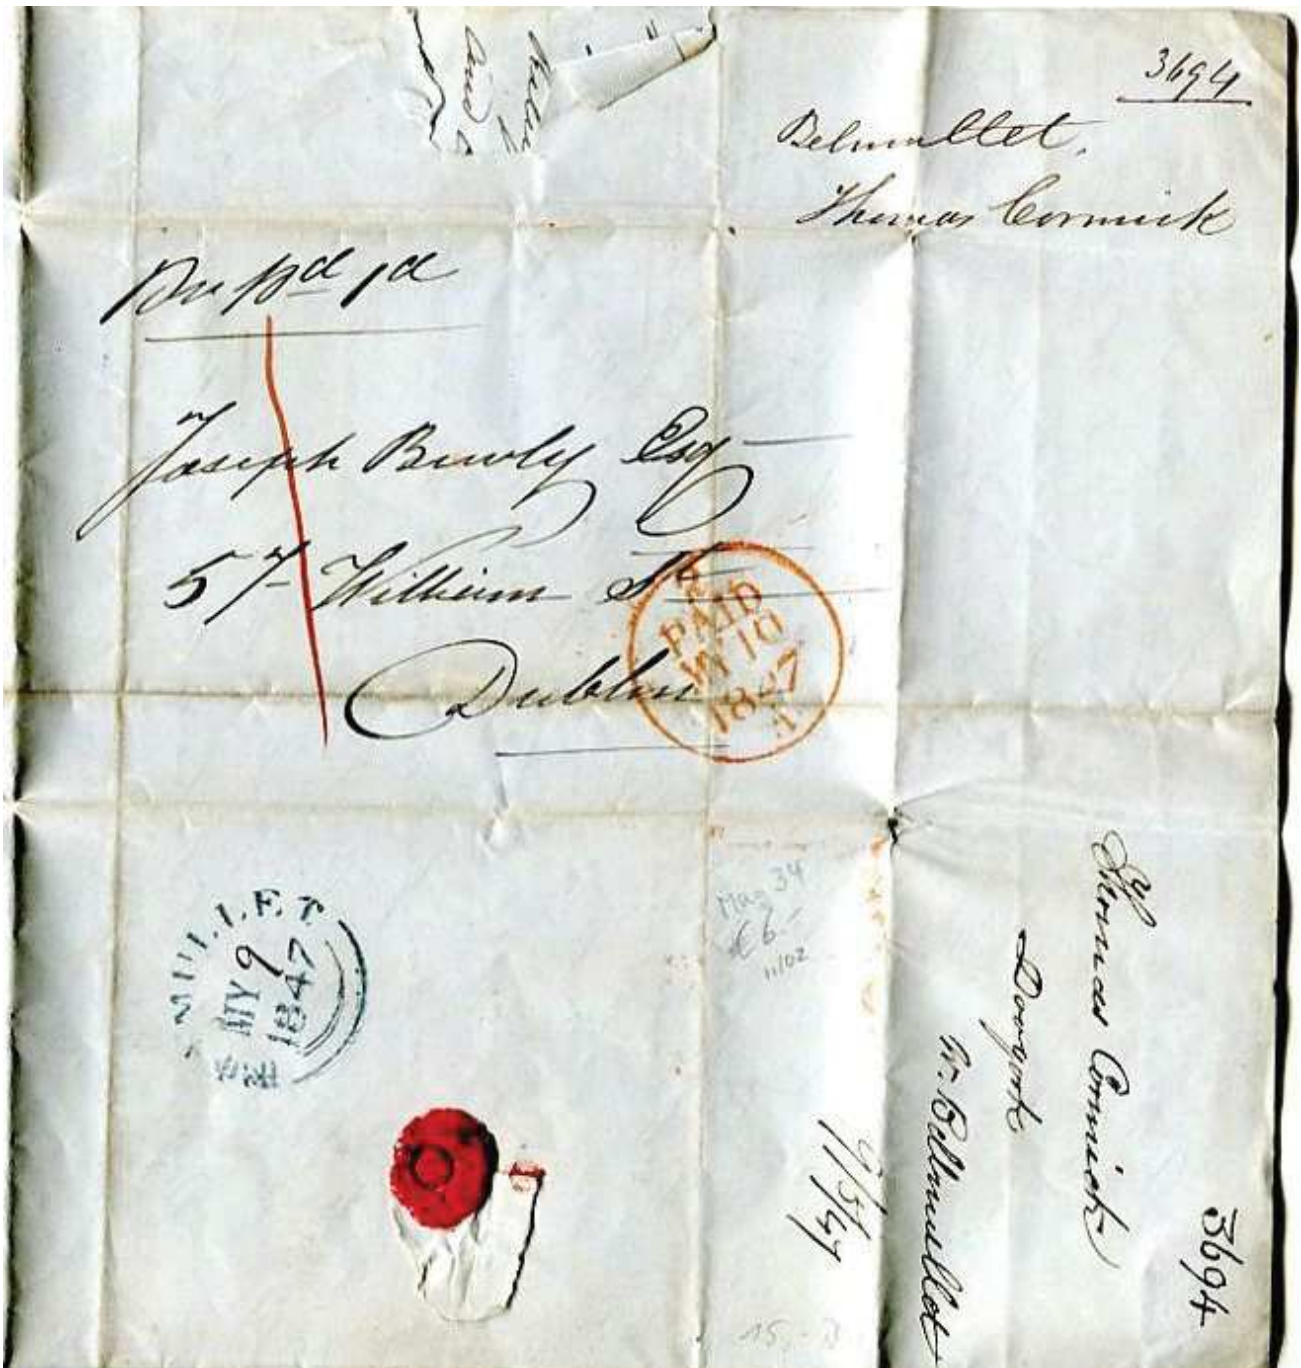 3694
Belmullet,
Thomas Cormick
Pre pd 1d
Joseph Bewly Esq
57 William St
Dublin
PAID
MY 10
1847
A
MULLET
MY 9
1847
May 34
€6.-
11/02
Thomas Cormick
Doogort
Nr. Bellmullet
9/5/47
3694
15.-